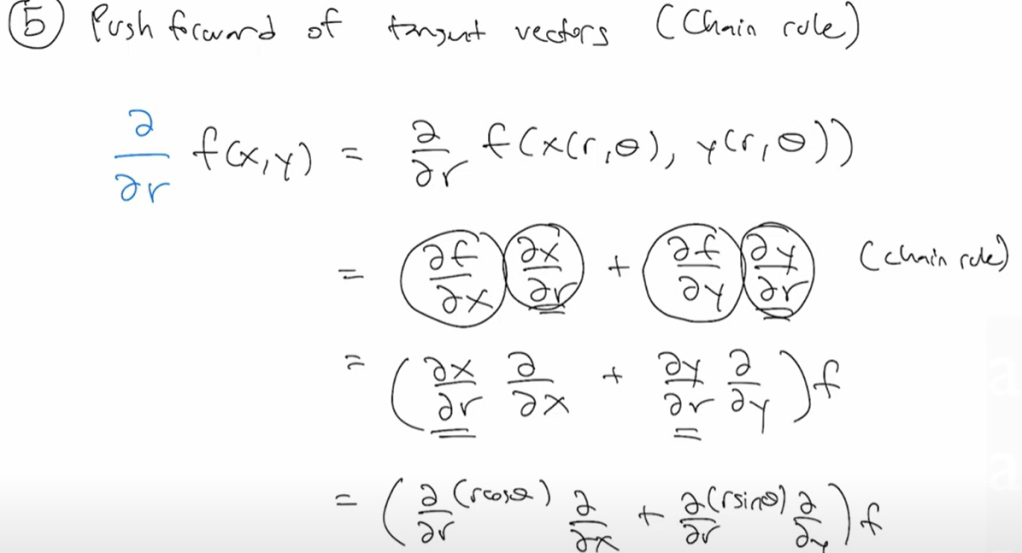 ⑤ Push forward of tangent vectors (Chain rule)
∂/∂r f(x,y) = ∂/∂r f(x(r,θ), y(r,θ))
= (∂f/∂x)(∂x/∂r) + (∂f/∂y)(∂y/∂r) (chain rule)
= (∂x/∂r ∂/∂x + ∂y/∂r ∂/∂y)f
= (∂/∂r (rcosθ) ∂/∂x + ∂/∂r (rsinθ) ∂/∂y)f